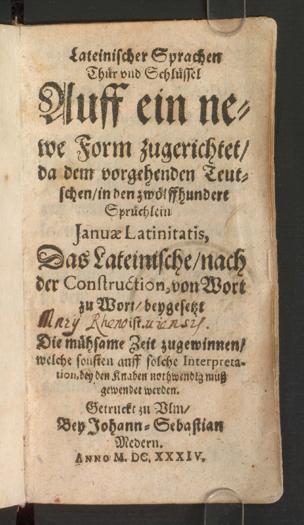 Lateinischer Sprachen
Thür vnd Schlüssel
Auff ein ne-
we Form zugerichtet/
da dem vorgehenden Teut-
schen/in den zwölffhundert
Sprüchlein
Januæ Latinitatis,
Das Lateinische/nach
der Construction, von Wort
zu Wort/beygesetzt
ist.
Die mühsame Zeit zugewinnen/
welche sonsten auff solche Interpreta-
tion, bey den Knaben nothwendig muß
gewendet werden.
Getruckt zu Vlm/
Bey Johann-Sebastian
Medern.
ANNO M. DC. XXXIV.